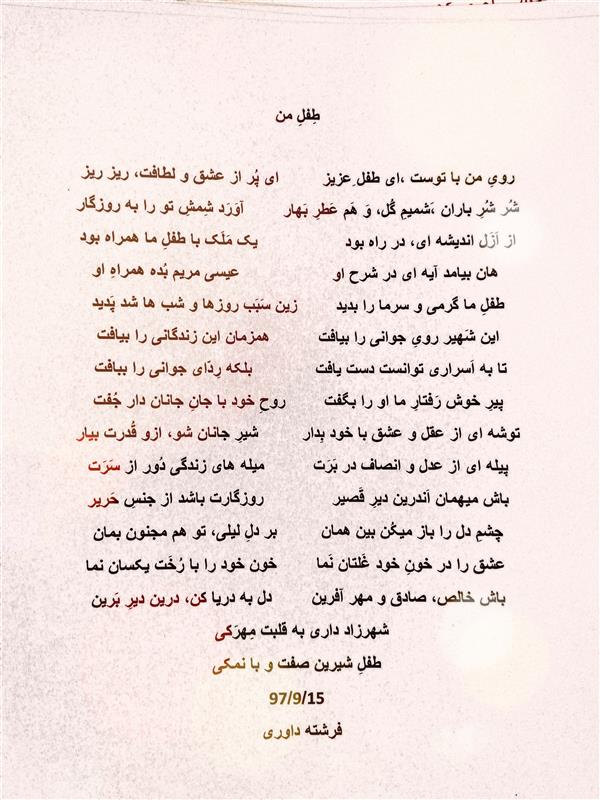 طِفلِ من
رویِ من با توست ،ای طفل ِعزیز ای پُر از عشق و لطافت، ریز ریز
شُر شُرِ باران ،شَمیمِ گُل، وَ هَم عَطرِ بَهار آوَرَد شِمشِ تو را به روزگار
از اَزَل اندیشه ای، در راه بود یک مَلَک با طفلِ ما همراه بود
هان بیامد آیه ای در شرح او عیسی مریم بُده همراهِ او
طفلِ ما گرمی و سرما را بدید زین سَبَب روزها و شب ها شد پَدید
این شَهیر رویِ جوانی را بیافت همزمان این زندگانی را بیافت
تا به اَسراری توانست دست یافت بلکه رِدّای جوانی را ببافت
پیرِ خوش رَفتارِ ما او را بگفت روحِ خود با جانِ جانان دار جُفت
توشه ای از عقل و عشق با خود بِدار شیرِ جانان شو، ازو قُدرت بیار
پیله ای از عدل و انصاف در بَرَت میله های زندگی دُور از سَرَت
باش میهمان اَندرین دیرِ قَصیر روزگارت باشد از جنسِ حَریر
چشمِ دل را باز میکُن بین همان بر دلِ لیلی، تو هم مجنون بمان
عشق را در خونِ خود غَلتان نَما خون خود را با رُخَت یکسان نما
باش خالص، صادق و مهر آفرین دل به دریا کن، درین دیرِ بَرین
شهرزاد داری به قلبت مِهرَکی
طفلِ شیرین صفت و با نمکی
97/9/15
فرشته داوری